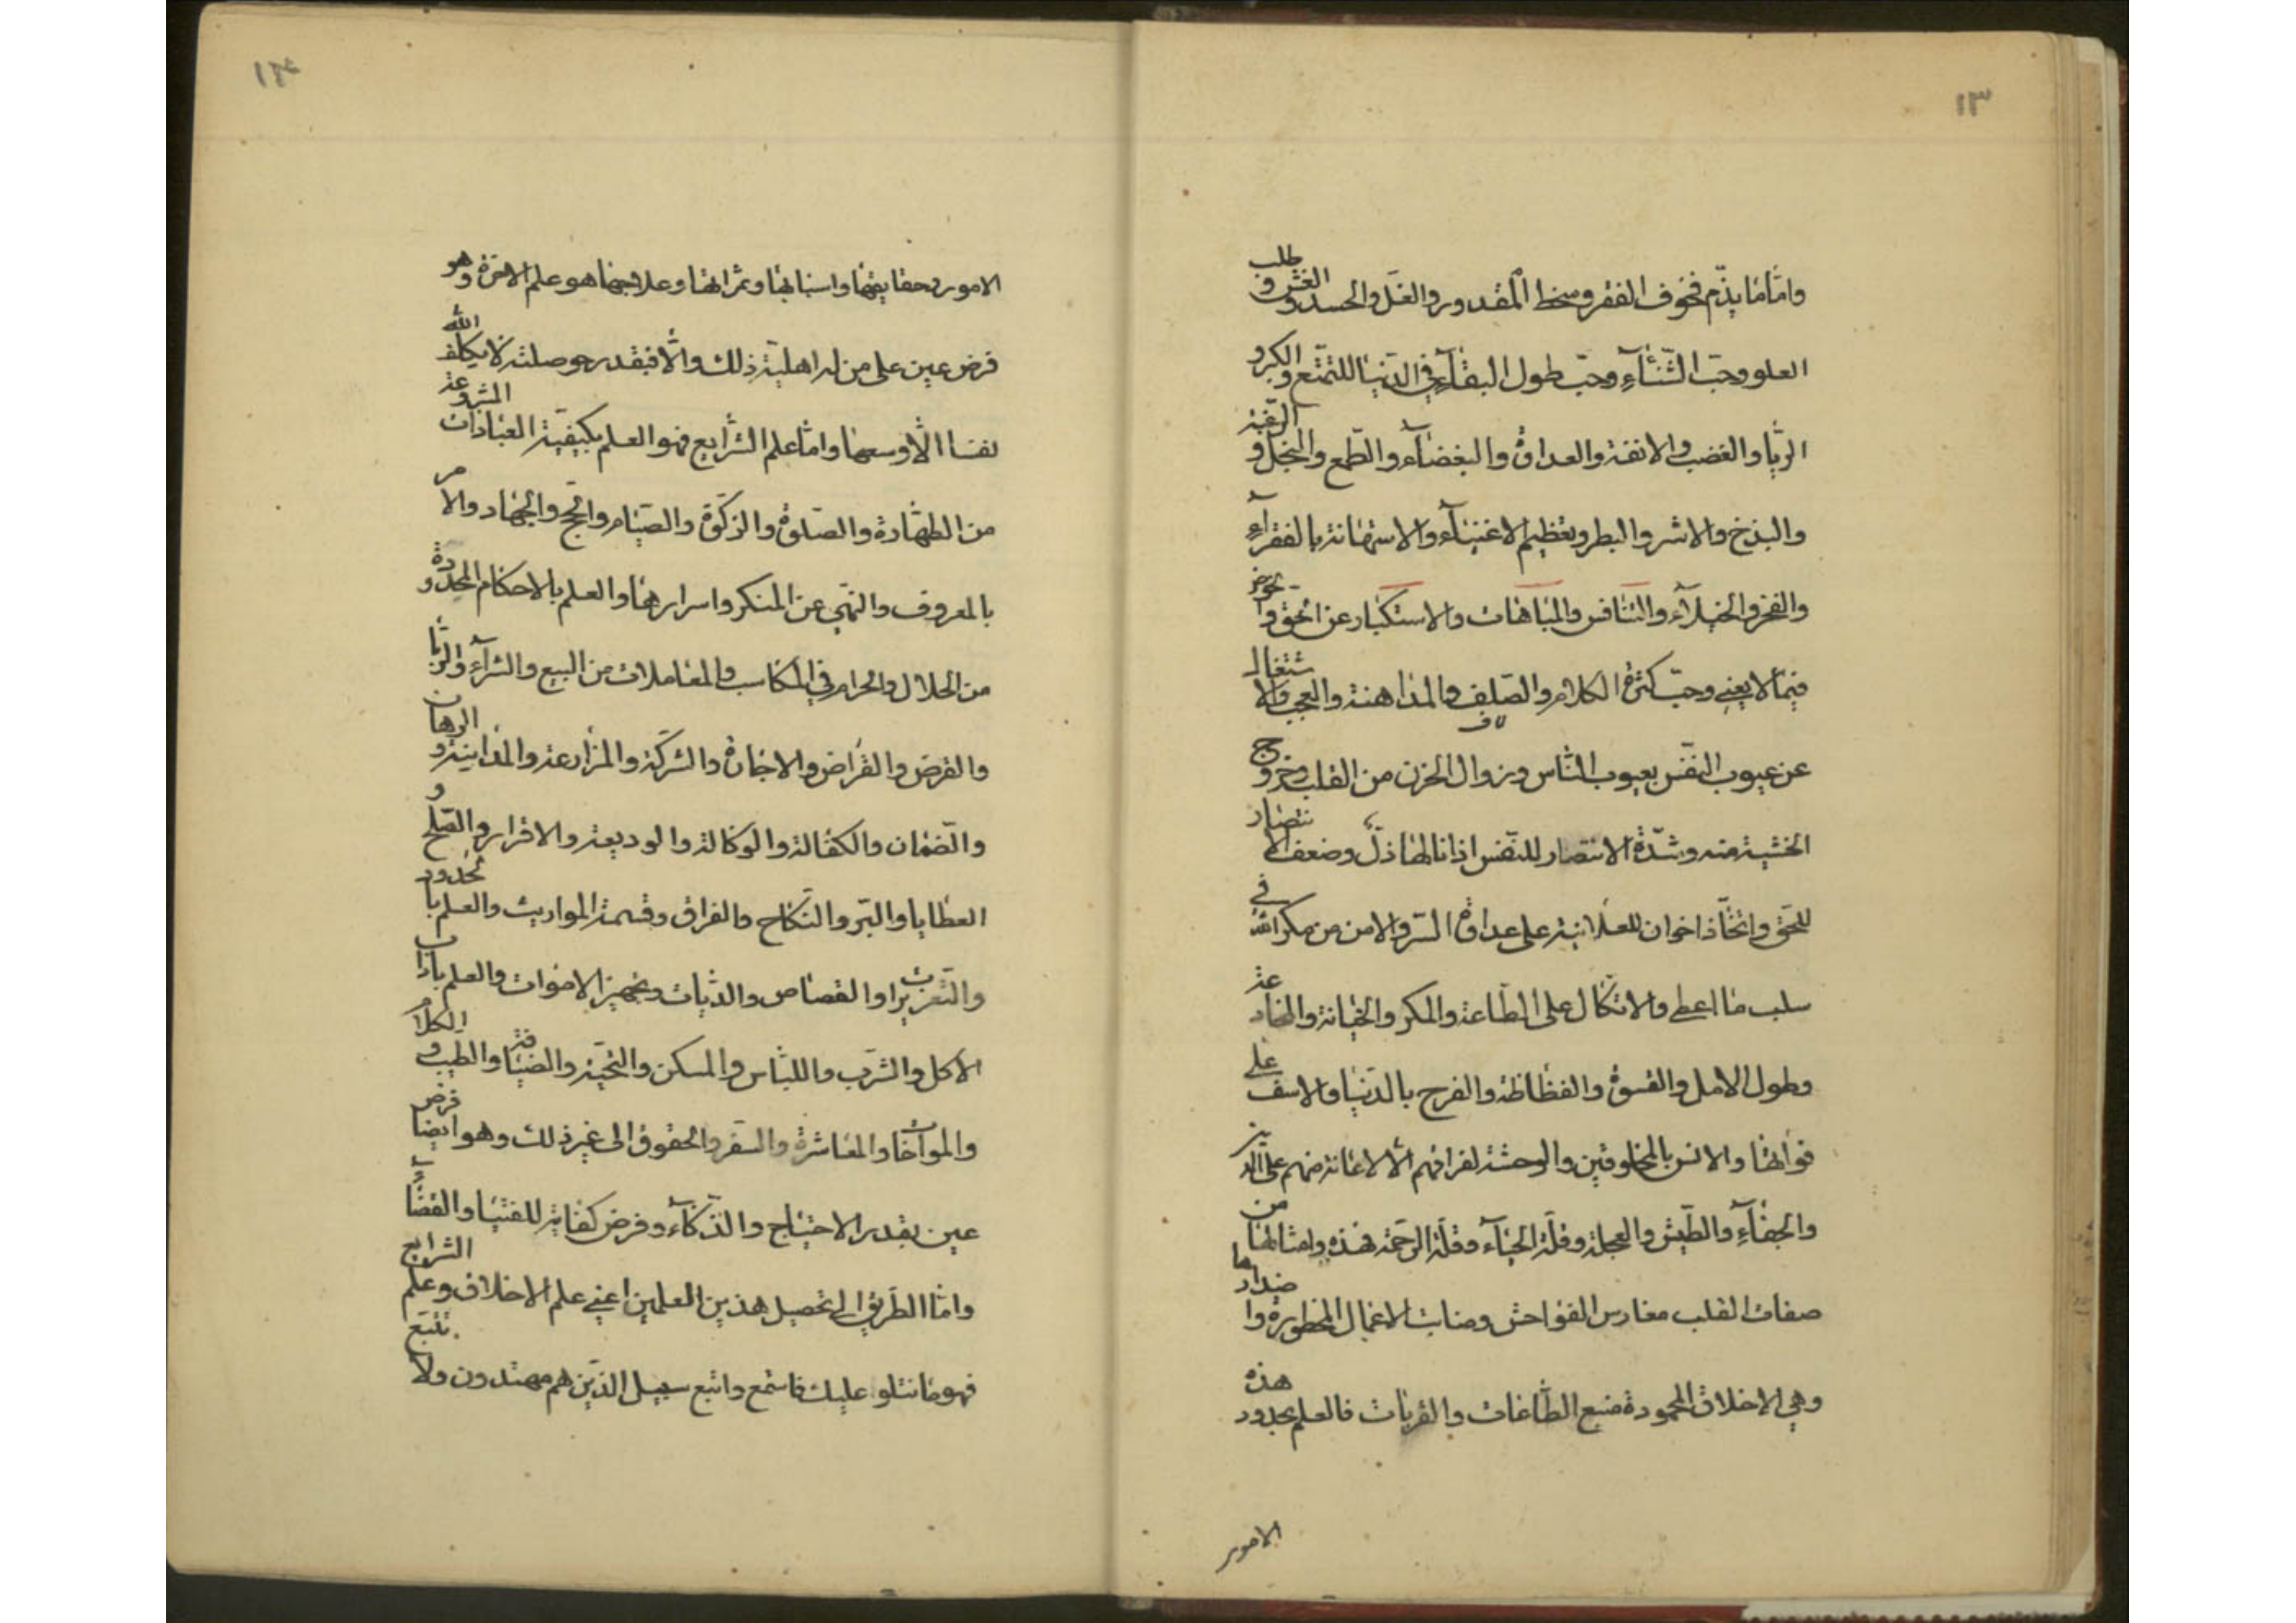 ١٣
واما ما يذم فخوف الفقر وسخط المقدور والغل والحسد والغش وطلب
العلو وحب الثنآء وحب طول البقآء في الدنيا للتمتع والكبر و
الريا والغضب والانفة والعداوة والبغضآء والطمع والبخل والرغبة
والبذخ والاشر والبطر وتعظيم الاغنيآء والاستهانة بالفقرآء
والفخر والخيلآء والتنافس والمباهات والاستكبار عن الحق والخوض
فيما لا يعني وحب كثرة الكلام والصلف والمداهنة والعجب والاشتغال
عن عيوب النفس بعيوب الناس وزوال الحزن من القلب وخروج
الخشية منه وشدة الانتصار للنفس اذا نالها ذل وضعف الانتصار
للحق واتخاذ اخوان للعلانية على عداوة السر والامن من مكر الله في
سلب ما اعطى والاتكال على الطاعة والمكر والخيانة والمخادعة
وطول الامل والقسوة والفظاظة والفرح بالدنيا والاسف على
فواتها والانس بالمخلوقين والوحشة لفراقهم الا لاعانة منهم على الدين
والجفآء والطيش والعجلة وقلة الحيآء وقلة الرحمة فهذه وامثالها من
صفات القلب مغارس الفواحش ومنابت الاعمال المحظورة واضدادها
وهي الاخلاق المحمودة منبع الطاعات والقربات فالعلم بحدود هذه
الامور
١٤
الامور وحقايقها واسبابها وثمراتها وعلاجها هو علم الاخرة وهو
فرض عين على من له اهلية ذلك والا فبقدر حوصلته لا يكلف الله
نفسا الا وسعها واما علم الشرايع فهو العلم بكيفية العبادات المشروعة
من الطهارة والصلوة والزكوة والصيام والحج والجهاد والامر
بالمعروف والنهي عن المنكر واسرارها والعلم بالاحكام المحدودة
من الحلال والحرام في المكاسب والمعاملات من البيع والشرآء والربا
والقرض والقراض والاجارة والشركة والمزارعة والمداينة والرهان
والضمان والكفالة والوكالة والوديعة والاقرار والصلح و
العطايا والبر والنكاح والفراق وقسمة المواريث والعلم بالحدود
والتعزيرات والقصاص والديات وتجهيز الاموات والعلم باداب
الاكل والشرب واللباس والمسكن والتحية والضيافة والطيب والكلام
والمواخات والمعاشرة والسفر والحقوق الى غير ذلك وهو ايضا فرض
عين بقدر الاحتياج والذكآء وفرض كفاية للفتيا والقضآء
واما الطريق الى تحصيل هذين العلمين اعني علم الاخلاق وعلم الشرايع
فهو ما نتلو عليك فاستمع واتبع سبيل الذين هم مهتدون ولا تتبع